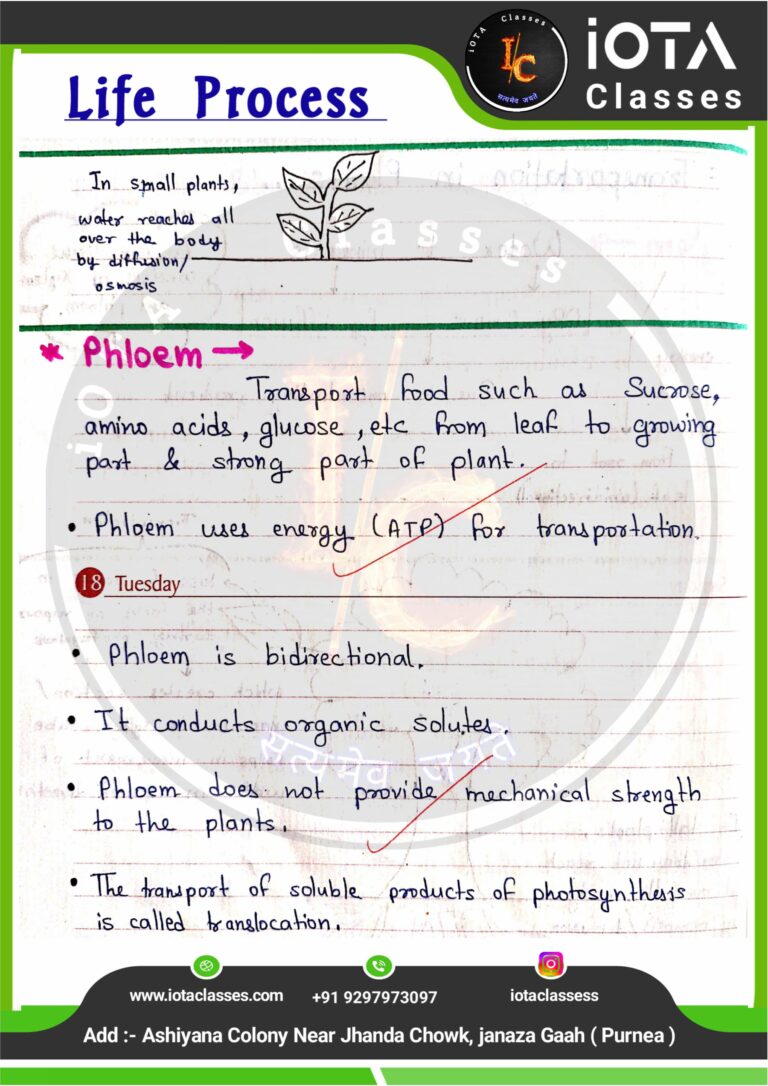 iOTA Classes
I/C
सत्यमेव जयते
iOTA
Classes
Life Process
In small plants,
water reaches all
over the body
by diffusion/
osmosis
iOTA Classes
* Phloem →
Transport food such as Sucrose,
amino acids, glucose, etc from leaf to growing
part & strong part of plant.
• Phloem uses energy (ATP) for transportation.
18 Tuesday
I/C
• Phloem is bidirectional.
• It conducts organic solutes.
सत्यमेव जयते
• Phloem does not provide mechanical strength
to the plants.
• The transport of soluble products of photosynthesis
is called translocation.
www.iotaclasses.com +91 9297973097 iotaclassess
Add :- Ashiyana Colony Near Jhanda Chowk, janaza Gaah ( Purnea )